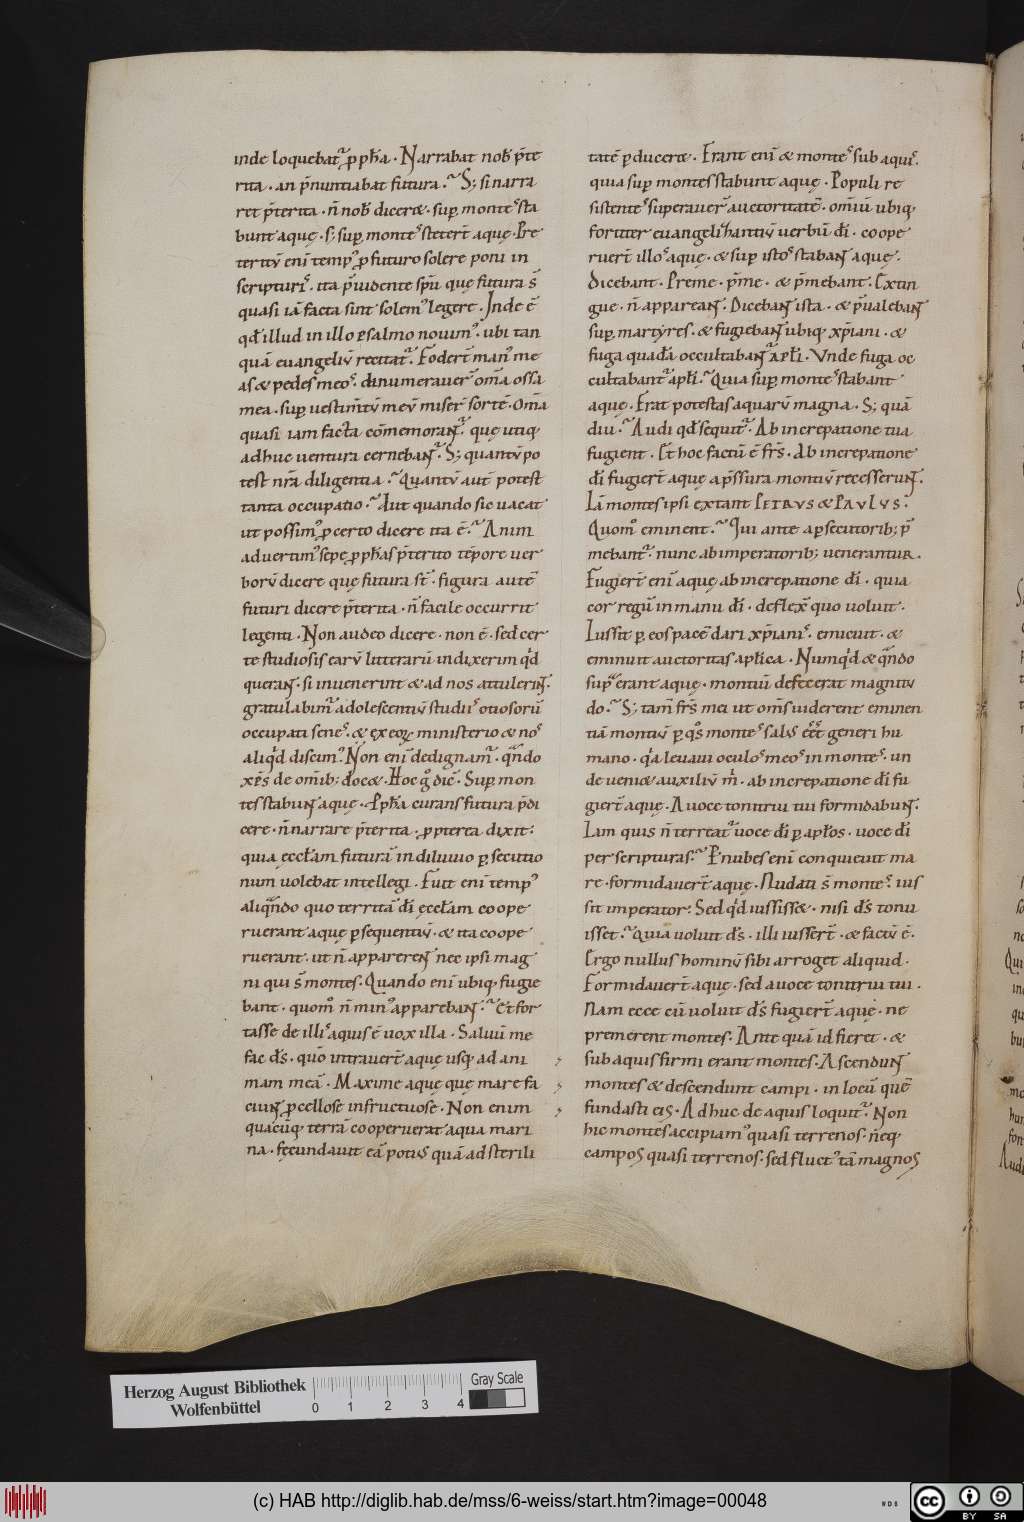 inde loquebat᷑ ꝓph̄a · Narrabat nob̄ p̄te
rita · an p̄nuntiabat futura · S; si narra
ret p̄terita · n̄ nob̄ diceret · sup montes sta
bunt aquę · s; sup montes steter̄t aquę · Pre
teritū eni̅ temp᷒ ꝓ futuro solere poni in
scripturis · ita p̄uidente sp̅u quę futura s̄
quasi iā facta sint solem᷒ legere · Inde ē
qd̄ illud in illo psalmo nouim᷒ · ubi tan
quā euangeliū recitat᷑ · Foder̄t man᷒ me
as & pedes meos · dinumerauer᷑ om̄a ossa
mea · sup uestim̄tū meū miser̄ sortē · Om̄a
quasi iam facta cōmemorant᷑ · que utiq;
adhuc uentura cernebant᷑ · S; quantū po
test nr̄a diligentia · Quantū aut̄ potest
tanta occupatio · Aut quando sic uacat
ut possim᷒ ꝓ certo dicere ita ē · Anim
aduertim᷒ sepe ꝓph̄as p̄terito tēpore uer
borū dicere quę futura st̄ · figura autē
futuri dicere p̄terita · n̄ facile occurrit
legenti · Non audeo dicere · non ē · sed cer
te studiosis earū litterarū indixerim qd̄
querant · si inuenerint & ad nos attulerint ·
gratulabim᷑ adolescentiū studiis otiosorū
occupati senes · & ex eoꝝ ministerio & nos
aliqd̄ discim᷒ · Non eni̅ dedignam᷑ · qn̄do
xp̄s de om̄ib; docet · Hoc g̊ dic̄ · Sup mon
tes stabunt aquę · Pph̄a curans futura p̄di
cere · n̄ narrare p̄terita · ꝓpterea dixit ·
quia eccl̄am futurā in diluuio ꝑsecutio
num uolebat intellegi · Fuit eni̅ temp᷒
aliqn̄do quo territā di̅ ęccl̄am coope
ruerant aquę ꝑsequentiū · & ita coope
ruerant · ut n̄ apparerent nec ipsi mag
ni qui s̄ montes · Quando eni̅ ubiq; fugie
bant · quom̊ n̄ min᷒ apparebant · Et for
tasse de illis aquis ē uox illa · Saluū me
fac ds̄ · quo̅ intrauer̄t aquę usq; ad ani
mam meā · Maxime aquę quę mare fa
ciunt ꝓcellose infructuose · Non enim
quacūq; terrā cooperuerat aqua mari
na · fęcundauit eā potius quā ad sterili
tatē ꝑduceret · Erant eni̅ & montes sub aquis ·
quia sup montes stabunt aquę · Populi re
sistentes superauer̄ auctoritatē · om̄iū ubiq;
fortiter euangelizantiū uerbū di̅ · coope
ruer̄t illos aquę · & sup istos stabant aquę ·
Dicebant · Preme · p̄me · & p̄mebant · Extin
gue · n̄ appareant · Dicebant ista · & p̄ualebant
sup martyres · & fugiebant ubiq; xp̄iani · &
fuga quadā occultabant᷑ apl̄i · Vnde fuga oc
cultabant᷑ apl̄i · Quia sup montes stabant
aquę · Erat potestas aquarū magna · S; quā
diu · Audi qd̄ sequit᷑ · Ab increpatione tua
fugient · Et hoc factū ē fr̄s · Ab increpatione
di̅ fugier̄t aquę a p̄ssura montiū recesserunt ·
Iā montes ipsi extant PETRVS & PAVLVS ·
Quom̊ eminent · Qui ante a ꝑsecutorib; p̄
mebant᷑ · nunc ab imperatorib; uenerantur ·
Fugier̄t eni̅ aquę ab increpatione di̅ · quia
cor regū in manu di̅ · deflexit quo uoluit ·
Iussit ꝑ eos pacē dari xp̄ianis · emicuit · &
eminuit auctoritas apl̄ica · Numqd̄ & qn̄do
sup erant aquę · montiū defecerat magnitu
do · S; tam̄ fr̄s mei ut om̄s uiderent eminen
tiā montiū ꝑ qs̊ montes salus eēt generi hu
mano · qa leuaui oculos meos in montes · un
de ueniet auxiliū m̄ · ab increpatione di̅ fu
gier̄t aquę · A uoce tonitrui tui formidabunt ·
Iam quis n̄ terreat᷑ uoce di̅ ꝑ apl̄os · uoce di̅
per scripturas · P nubes eni̅ conquieuit ma
re · formidauer̄t aquę · Nudati s̄ montes · ius
sit imperator · Sed qd̄ iussisset · nisi ds̄ tonu
isset · Quia uoluit ds̄ · illi iusser̄t · & factū ē ·
Ergo nullus hominū sibi arroget aliquid ·
Formidauer̄t aquę · sed a uoce tonitrui tui ·
Nam ecce cū uoluit ds̄ fugier̄t aquę · ne
premerent montes · Ante quā id fieret · &
sub aquis firmi erant montes · Ascendunt
montes & descendunt campi · in locū quē
fundasti eis · Adhuc de aquis loquit᷑ · Non
hic montes accipiam᷒ quasi terrenos · neq;
campos quasi terrenos · sed fluct᷒ tā magnos
Herzog August Bibliothek
Wolfenbüttel
0 1 2 3 4
Gray Scale
(c) HAB http://diglib.hab.de/mss/6-weiss/start.htm?image=00048
WDB
cc BY SA